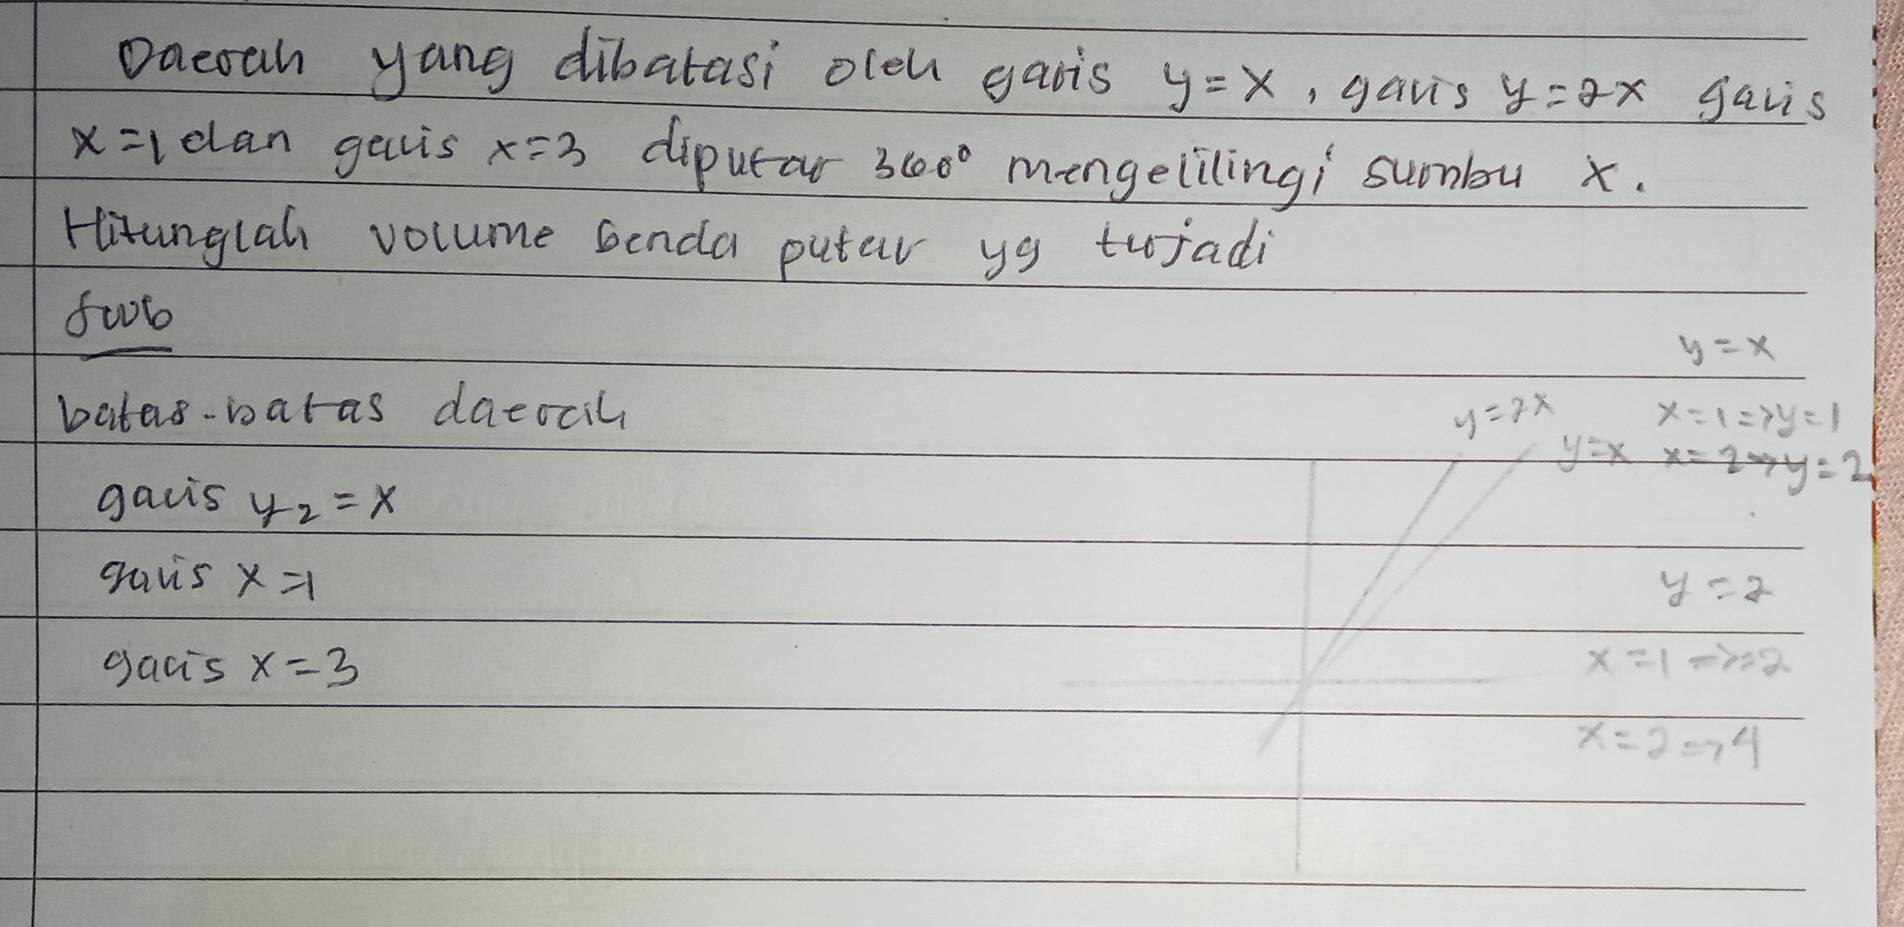 Daerah yang dibatasi oleh garis y=x, garis y=2x garis
x=1 dan garis x=3 diputar 360° mengelilingi sumbu x.
Hitunglah volume benda putar yg terjadi
Jwb
batas-batas daerah
garis y₂=x
garis x=1
garis x=3
y=x
y=2x
x=1=>y=1
y=x
x=2=>y=2
y=2
x=1=>=2
x=2=>4